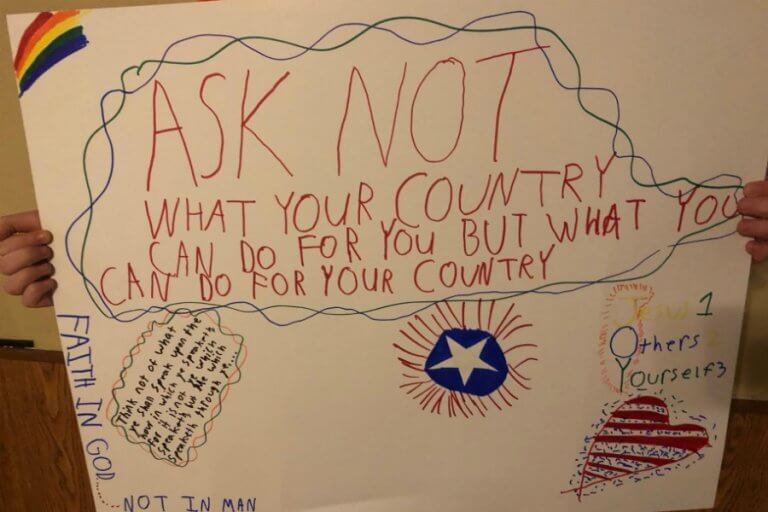 ASK NOT
WHAT YOUR COUNTRY
CAN DO FOR YOU BUT WHAT YOU
CAN DO FOR YOUR COUNTRY
FAITH IN GOD......
NOT IN MAN
Think not of what
ye shall speak upon the
hour in which ye speaketh
for it is not ye which
speaketh but he which
speaketh through ye...
Jesus 1
Others 2
Yourself 3